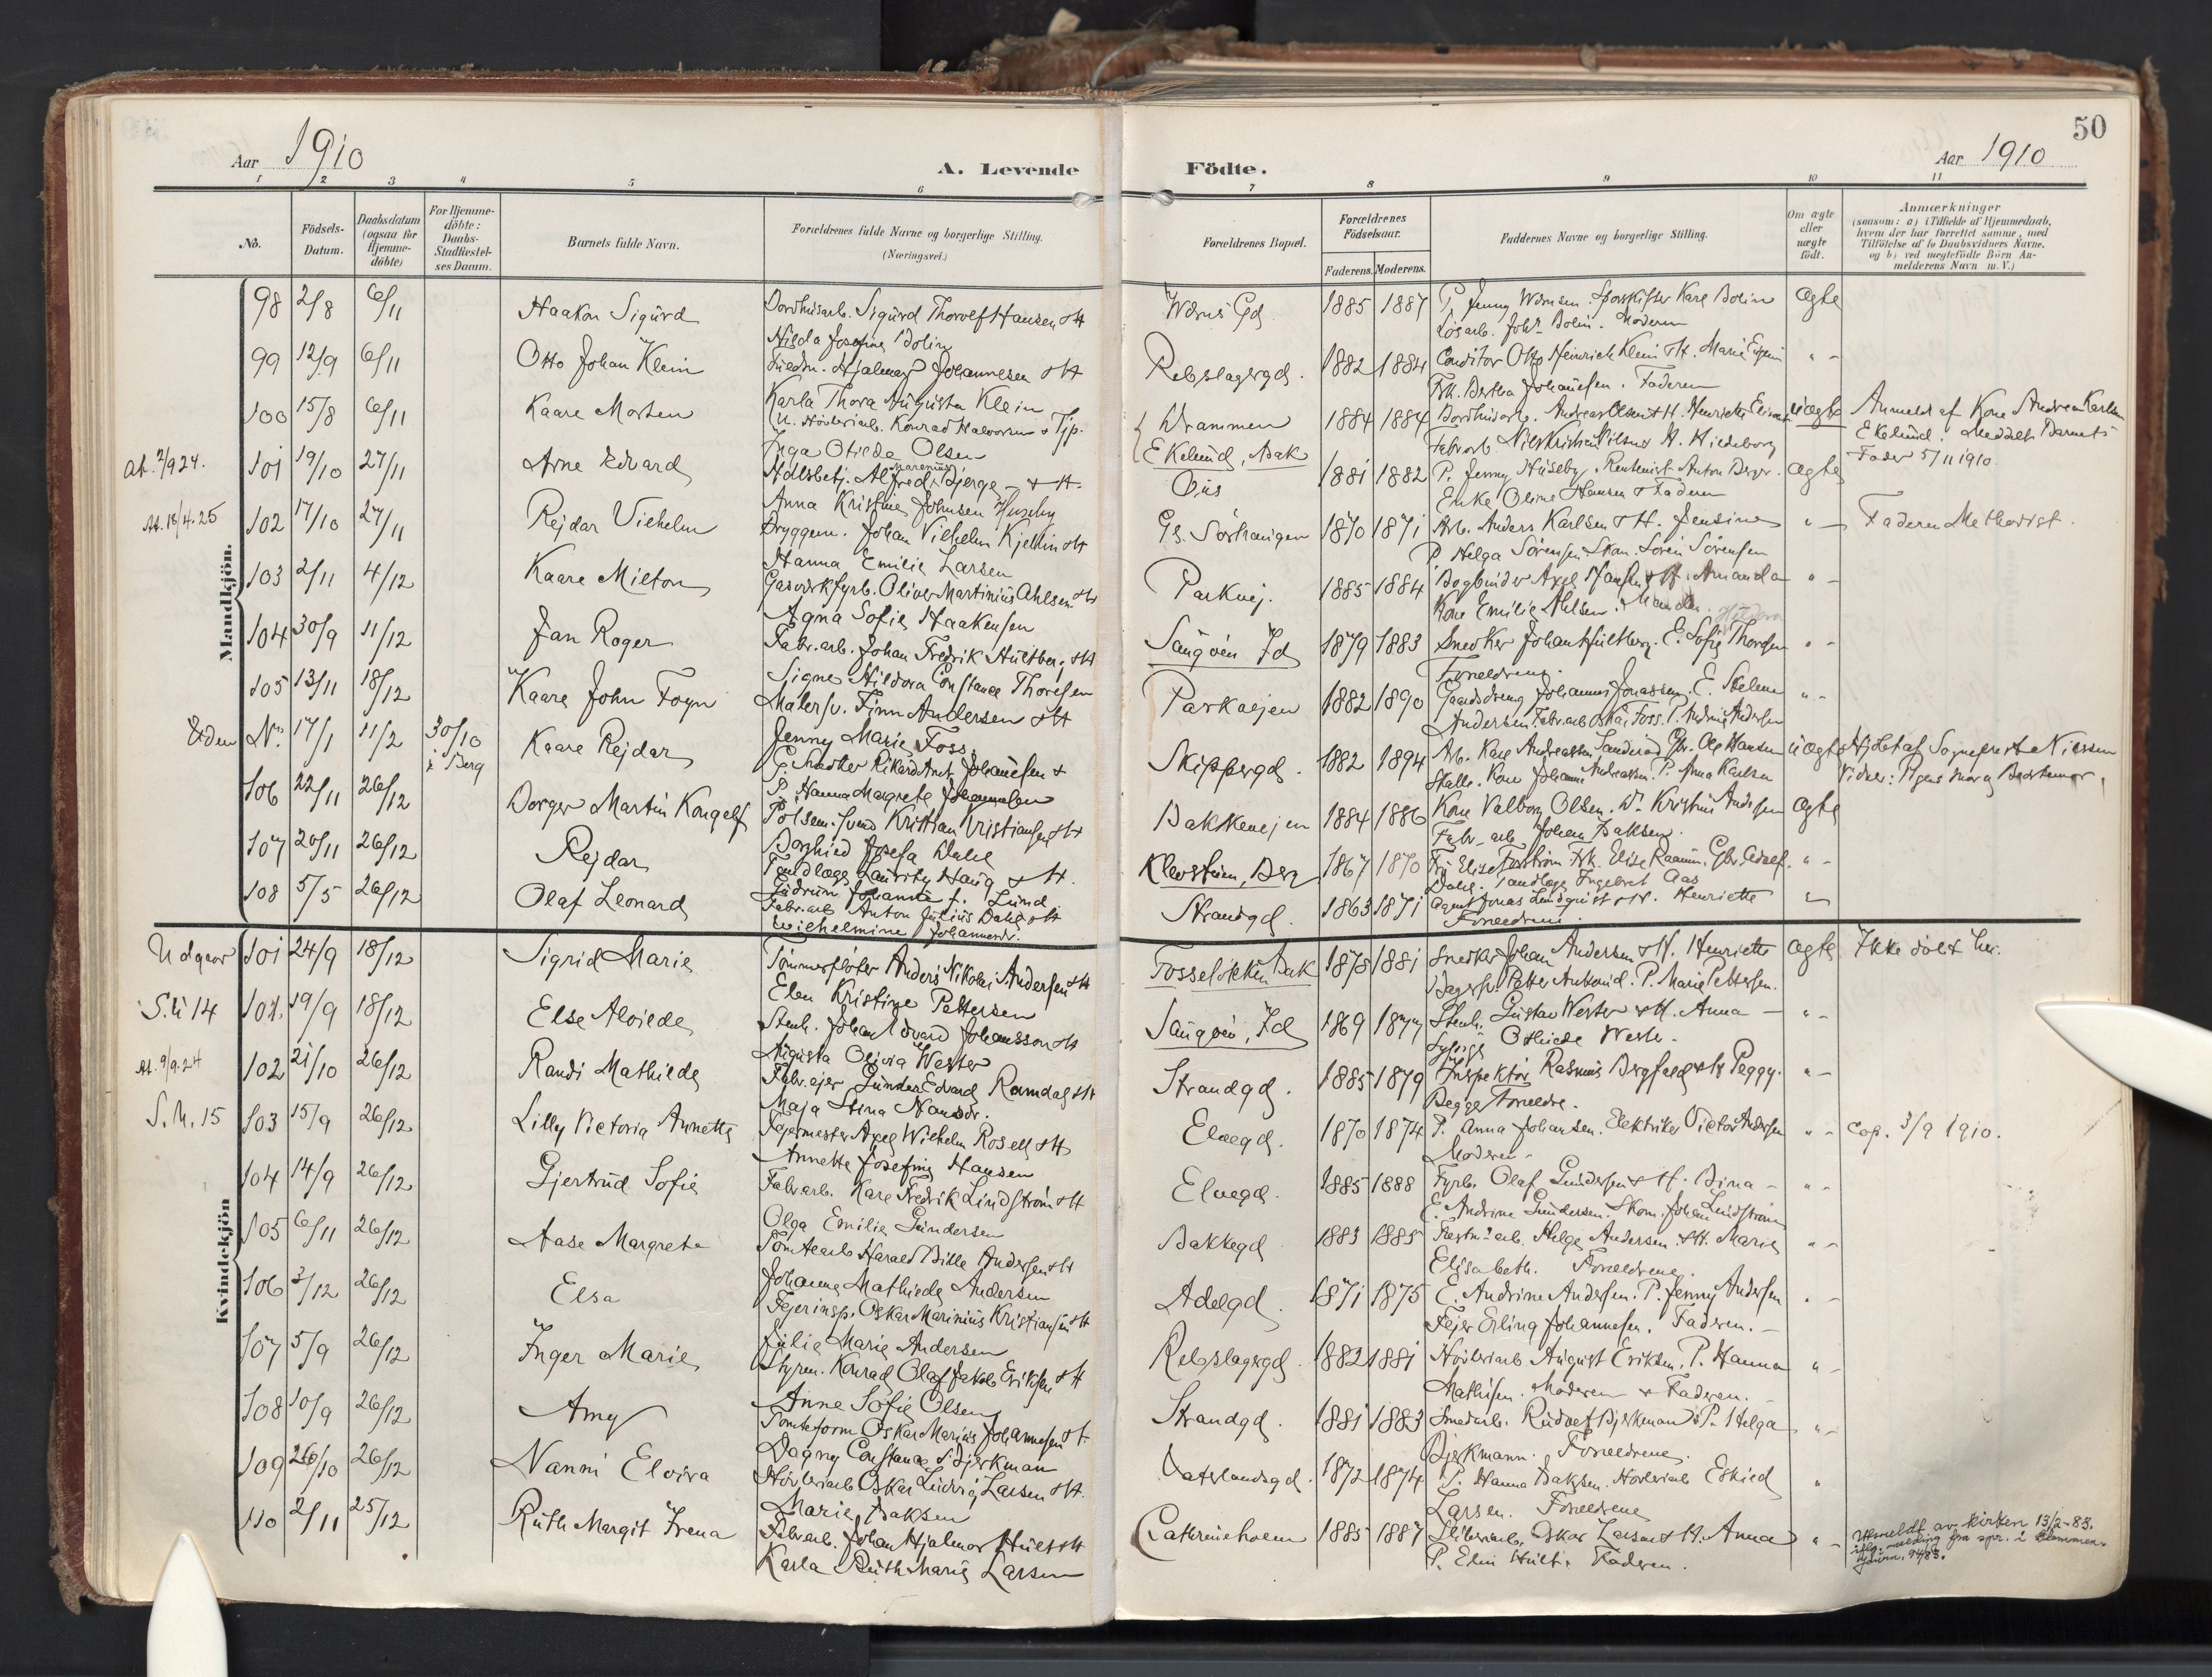 50
Aar 1910
A. Levende
Födte.
Aar 1910
1 2 3 4 5 6 7 8 9 10 11
No.
Födsels-
Datum.
Daabsdatum
(ogsaa for
Hjemme-
döbte)
For Hjemme-
döbte:
Daabs-
Stadfæstel-
ses Datum.
Barnets fulde Navn.
Forældrenes fulde Navne og borgerlige Stilling.
(Næringsvei.)
Forældrenes Bopæl.
Forældrenes
Födselsaar.
Faderens.
Moderens.
Faddernes Navne og borgerlige Stilling.
Om ægte
eller
uægte
födt.
Anmærkninger
(saasom: a) i Tilfælde af Hjemmedaab,
hvem der har forrettet samme, med
Tilföielse af to Daabsvidners Navne,
og b) ved uægtefödte Börn An-
melderens Navn m.V.)
Mandkjön.
98 2/8 6/11 Haakon Sigurd
Sigurd Thorolf Hansen & H
Hilda Josefine Bolin
1885 1887 P. Jenny
Karl Bolin
Moderen
Ægte
99 12/9 6/11 Otto Johan Klein
Hjalmar Johannesen & H
Karla Thora Augusta Klein
Rebslagergd. 1882 1884 Conditor Otto Heinrich Klein & H. Marie
Frk. Bertha Johannesen. Faderen
100 15/8 6/11 Kaare Morten
U. Hövleriarb. Konrad Halvorsen & Tjp.
Inga Otilde Olsen
Drammen
Ekelund, Bak
1884 1884 Andreas Olsen & H. Henriette
uægte
Anmeldt af Kone Andrea Karlsen
Ekelund. Meddelt Barnets
Fader 5/11 1910.
At. 2/9 24.
101 19/10 27/11 Arne Edvard
Hdlsbetj. Alfred Bjerge & H.
Anna Kristine Johnsen Huseby
Öus 1881 1882 P. Jenny Huseby. Rentenist Anton Berger.
Enke Oline Hansen & Faderen
Ægte
At. 18/4.25
102 17/10 27/11 Rejdar Vilhelm
Bryggem. Johan Vilhelm Kjellin & H
Hanna Emilie Larsen
1870 1871 Arb. Anders Karlsen & H. Jensine
P. Helga Sörensen. Skom. Sören Sörensen
Faderen Methodist.
103 2/11 4/12 Kaare Milton
Gasværkfyrb. Oliver Martinius Ahlsen & H
Agna Sofie Haakensen
Parkvej. 1885 1884 Bogbinder Axel Hansen & H. Amanda
Kone Emilie Ahlsen.
104 30/9 11/12 Jan Roger
Fabr.arb. Johan Fredrik Hultberg & H
Signe Hildora Constance Thoresen
Saugöen Id 1879 1883 Snedker Johan Hultberg. E. Sofie Thoresen
Forældrene.
105 13/11 18/12 Kaare John Foyn
Malersv. Finn Andersen & H
Jenny Marie Foss.
Parkvejen 1882 1890 Gaardsdreng Johannes Jonassen. E.
Andersen. Fabr.arb. Oskar Foss.
Uden
Nr. 17/1 11/2 30/10
i Berg
Kaare Rejdar
Johannesen &
P. Hanna Margrethe Johannesen
Skippergd. 1882 1894 Arb. Karl Andreassen
Ole Hansen
uægte
Hjdbt af Sogneprest Nilssen
106 22/11 26/12 Borger Martin Kongelf
Pölsem. svend Kristian Kristiansen & H
Borghild Josefa Dahl
Bakkevejen 1884 1886 Kone Valborg Olsen.
Fabr. arb. Johan Isaksen.
Ægte
107 20/11 26/12 Rejdar
Tandlæge Laurits Haug & H.
Gudrun Johanne f. Lund
Klevstuen, Berg 1867 1870
Tandlæge Ingebret Aas
108 5/5 26/12 Olaf Leonard
Fabr.arb. Anton Julius Dahl & H
Wilhelmine Johannesdr.
Strandgd. 1863 1871 Agent Jonas Lundquist & H. Henriette
Forældrene.
Kvindekjön
Udgaar
101 24/9 18/12 Sigrid Marie
Tömmerflöter Anders Nikolai Andersen & H
Elen Kristine Pettersen
Fosselökken Bak 1878 1881 Snedker Johan Andersen & H. Henriette
P. Marie Pettersen.
Ægte
Ikke döbt her.
S.U 14
101. 19/9 18/12 Else Alvilde
Stenh. Johan Edvard Johansson & H
Augusta Olivia Wester
Saugöen, Id 1869 1877 Stenh. Gustav Wester & H. Anna
Othilde Wester.
At. 9/9.24
102 21/10 26/12 Randi Mathilde
Fabr.ejer Gunder Edvard Ramdal & H
Maja Stina Nansdr.
Strandgd. 1885 1879 Inspektör Rasmus Bergfeld & H Peggy.
Begge Forældre.
S.U. 15
103 15/9 26/12 Lilly Victoria Annette
Fejermester Axel Wilhelm Rosell & H
Annette Josefine Hansen
Elvegd. 1870 1874 P. Anna Johansen. Elektriker Victor Andersen
Moderen
Cop. 3/9 1910.
104 14/9 26/12 Gjertrud Sofie
Fabr.arb. Karl Fredrik Lindström & H
Olga Emilie Gundersen
Elvegd. 1885 1888 Fyrb. Olaf Gundersen & H. Dina
E. Andrine Gundersen. Skom. Johan Lindström
105 6/11 26/12 Aase Margrete
Tomtearb Harald Bille Andersen & H
Johanne Mathilde Andersen
Bakkegd 1883 1885 Helge Andersen & H. Marie
Elisabeth. Forældrene.
106 3/12 26/12 Elsa
Fejerinsp. Oskar Marinius Kristiansen & H
Julie Marie Andersen
Adelgd. 1871 1875 E. Andrine Andersen. P. Jenny Andersen
Fejer Erling Johannesen. Faderen.
107 5/9 26/12 Inger Marie
Styrm. Konrad Olaf Jakob Eriksen & H
Anne Sofie Olsen
Rebslagergd. 1882 1881 Hövleriarb. August Eriksen. P. Hanna
Mathisen. Moderen & Faderen.
108 10/9 26/12 Amy
Tomteform. Oskar Marius Johannesen & H.
Dagny Constance Bjerkman
Strandgd. 1881 1883 Smedarb. Rudolf Bjerkman & P. Helga
Bjerkmann. Forældrene.
109 26/10 26/12 Nanni Elvira
Hövleriarb Oskar Ludvig Larsen & H.
Marie Isaksen
Vaterlandsgd. 1872 1874 P. Hanna Isaksen. Hövleriarb Eskild
Larsen. Forældrene
110 2/11 25/12 Ruth Margit Irena
Fabr.arb. Johan Hjalmar Hult & H
Karla Ruth Marie Larsen
Cathrineholm 1885 1887 Sliberiarb. Oskar Larsen & H. Anna
P. Elin Hult. Faderen.
Utmeldt av kirken 13/2-83.
iflg. melding fra spr. i
Journr. 94/83.